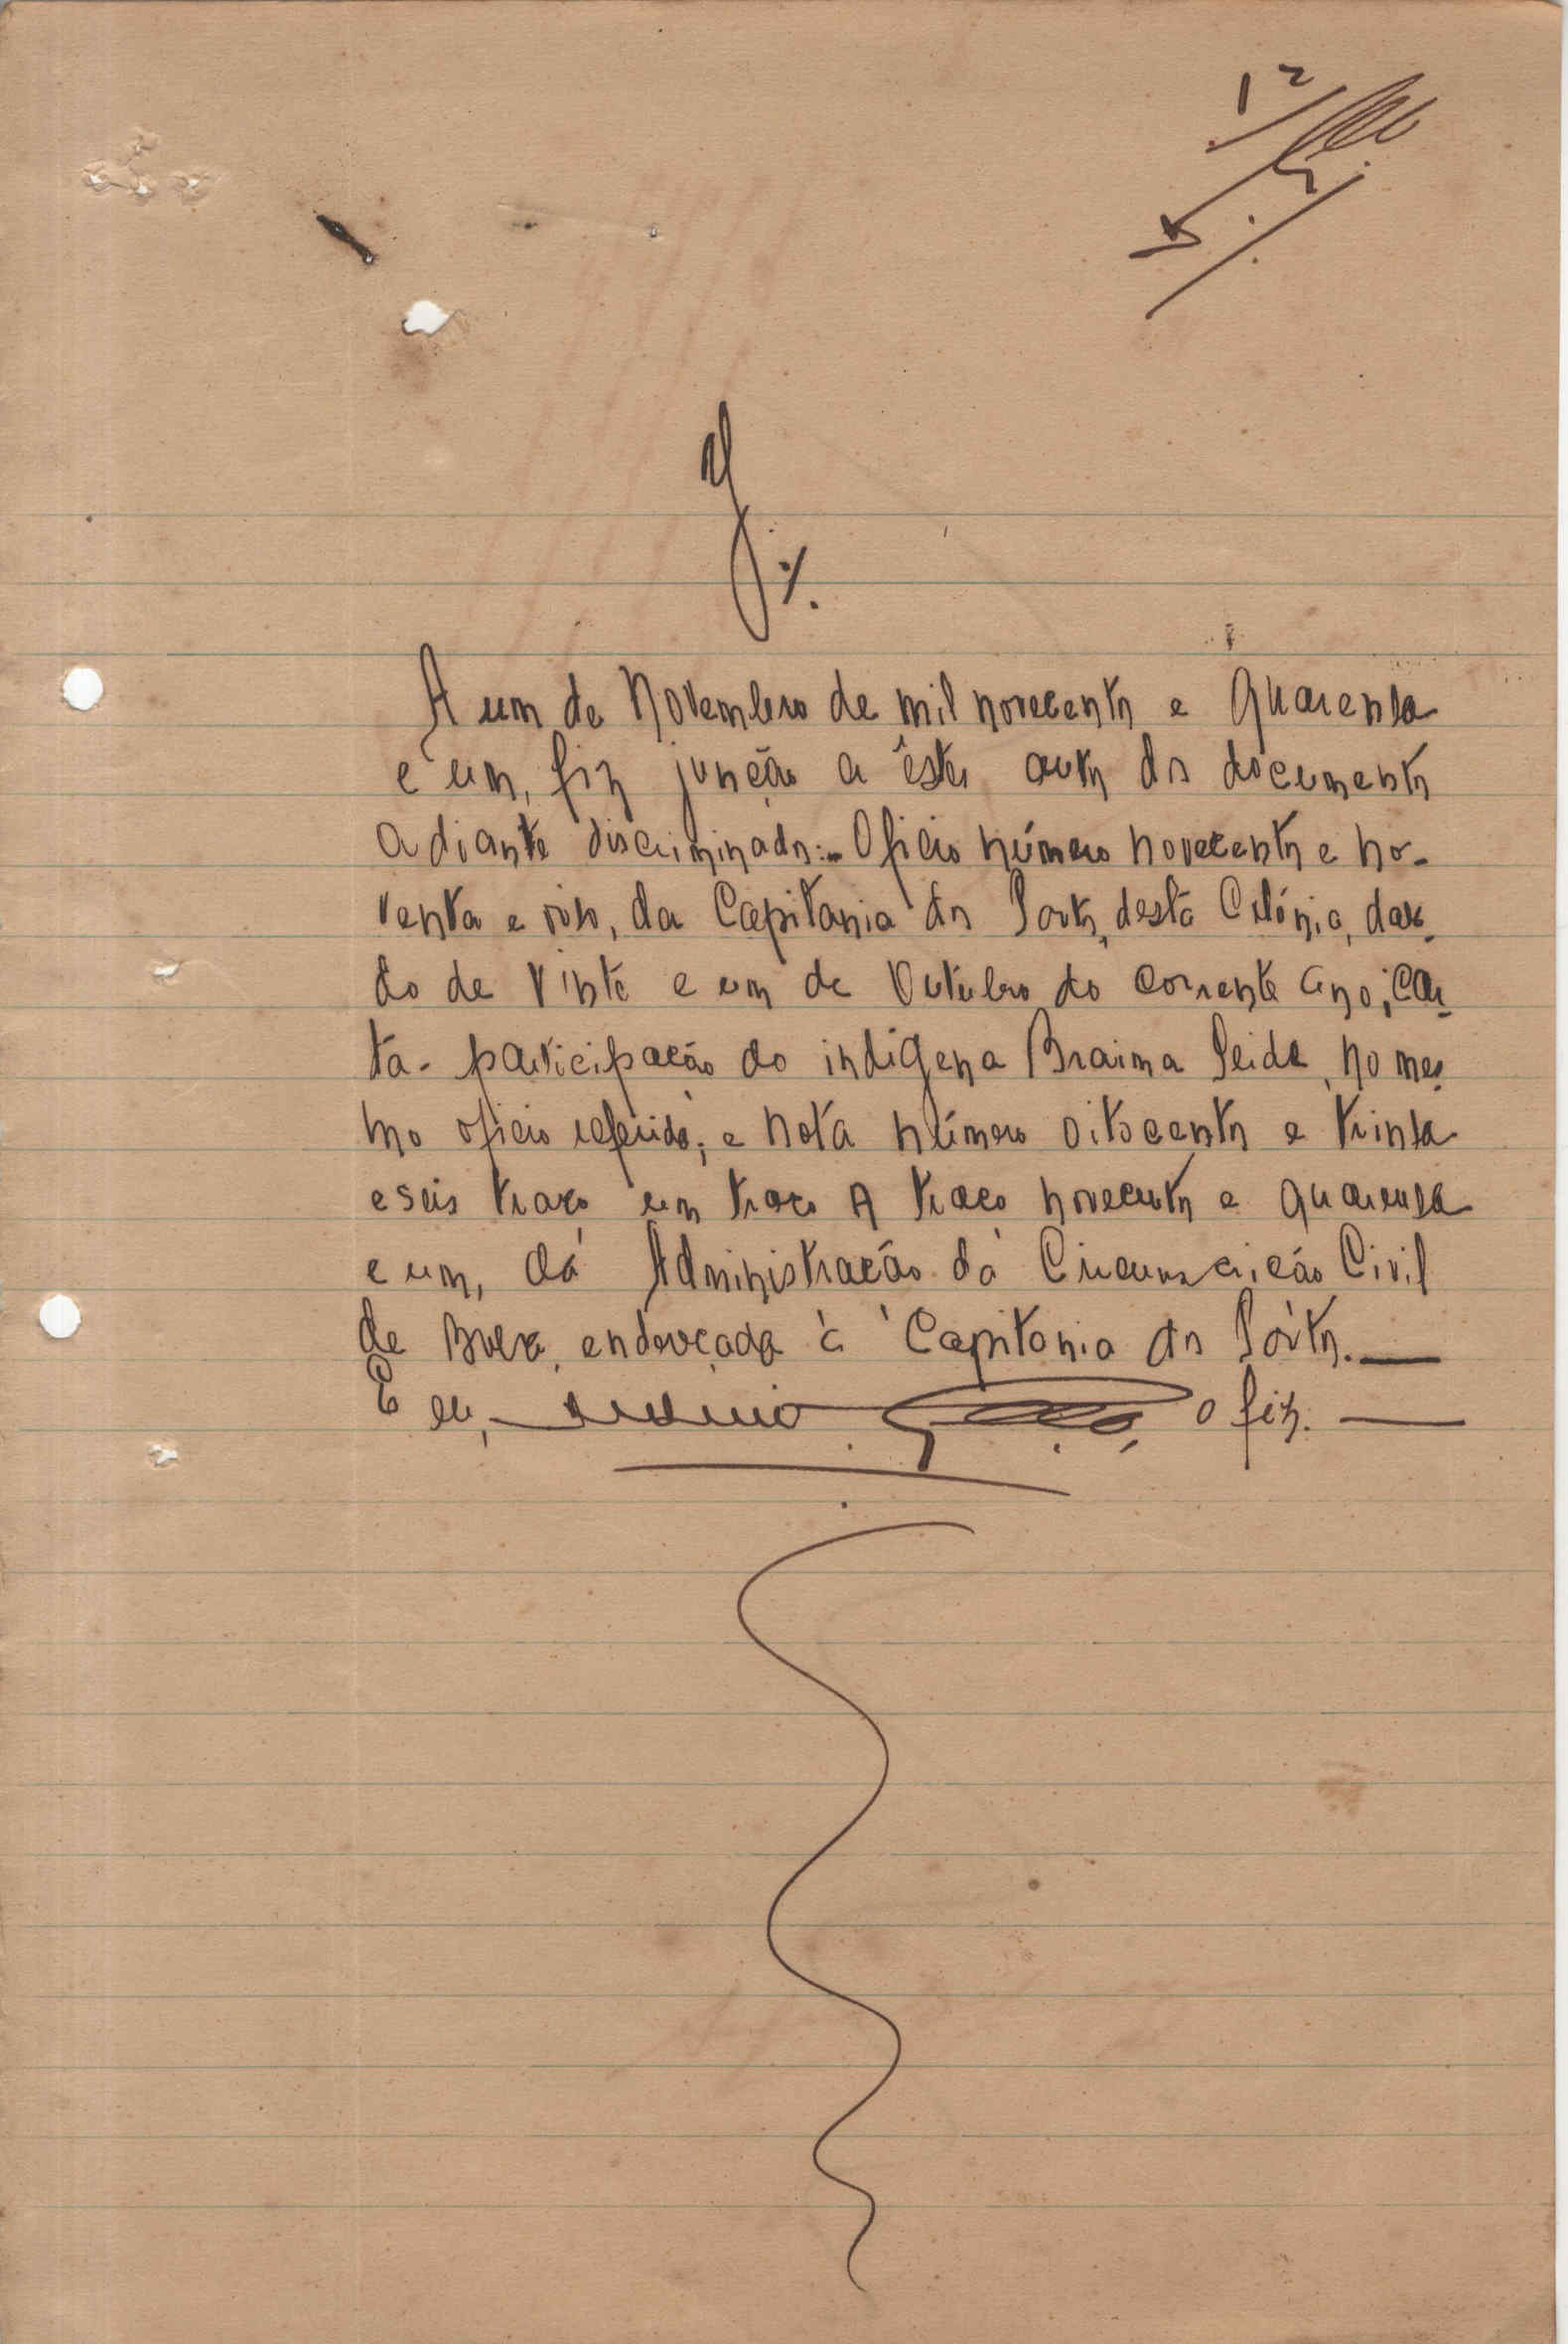 12
J.
A um de Novembro de mil novecentos e quarenta
e um, fiz junção a êstes autos dos documentos
adiante discriminados:- Oficio número novecentos e no-
venta e oito, da Capitania dos Portos, desta Colónia, data-
do de vinte e um de Outubro do corrente ano; car-
ta-participação do indigena Braima Seide, no mes-
mo oficio referido; e nota número oitocentos e trinta
e seis traço um traço A traço novecentos e quarenta
e um, da Administração da Circunscrição Civil
de endereçada à Capitania dos Pórtos.—
E eu, o fiz.—